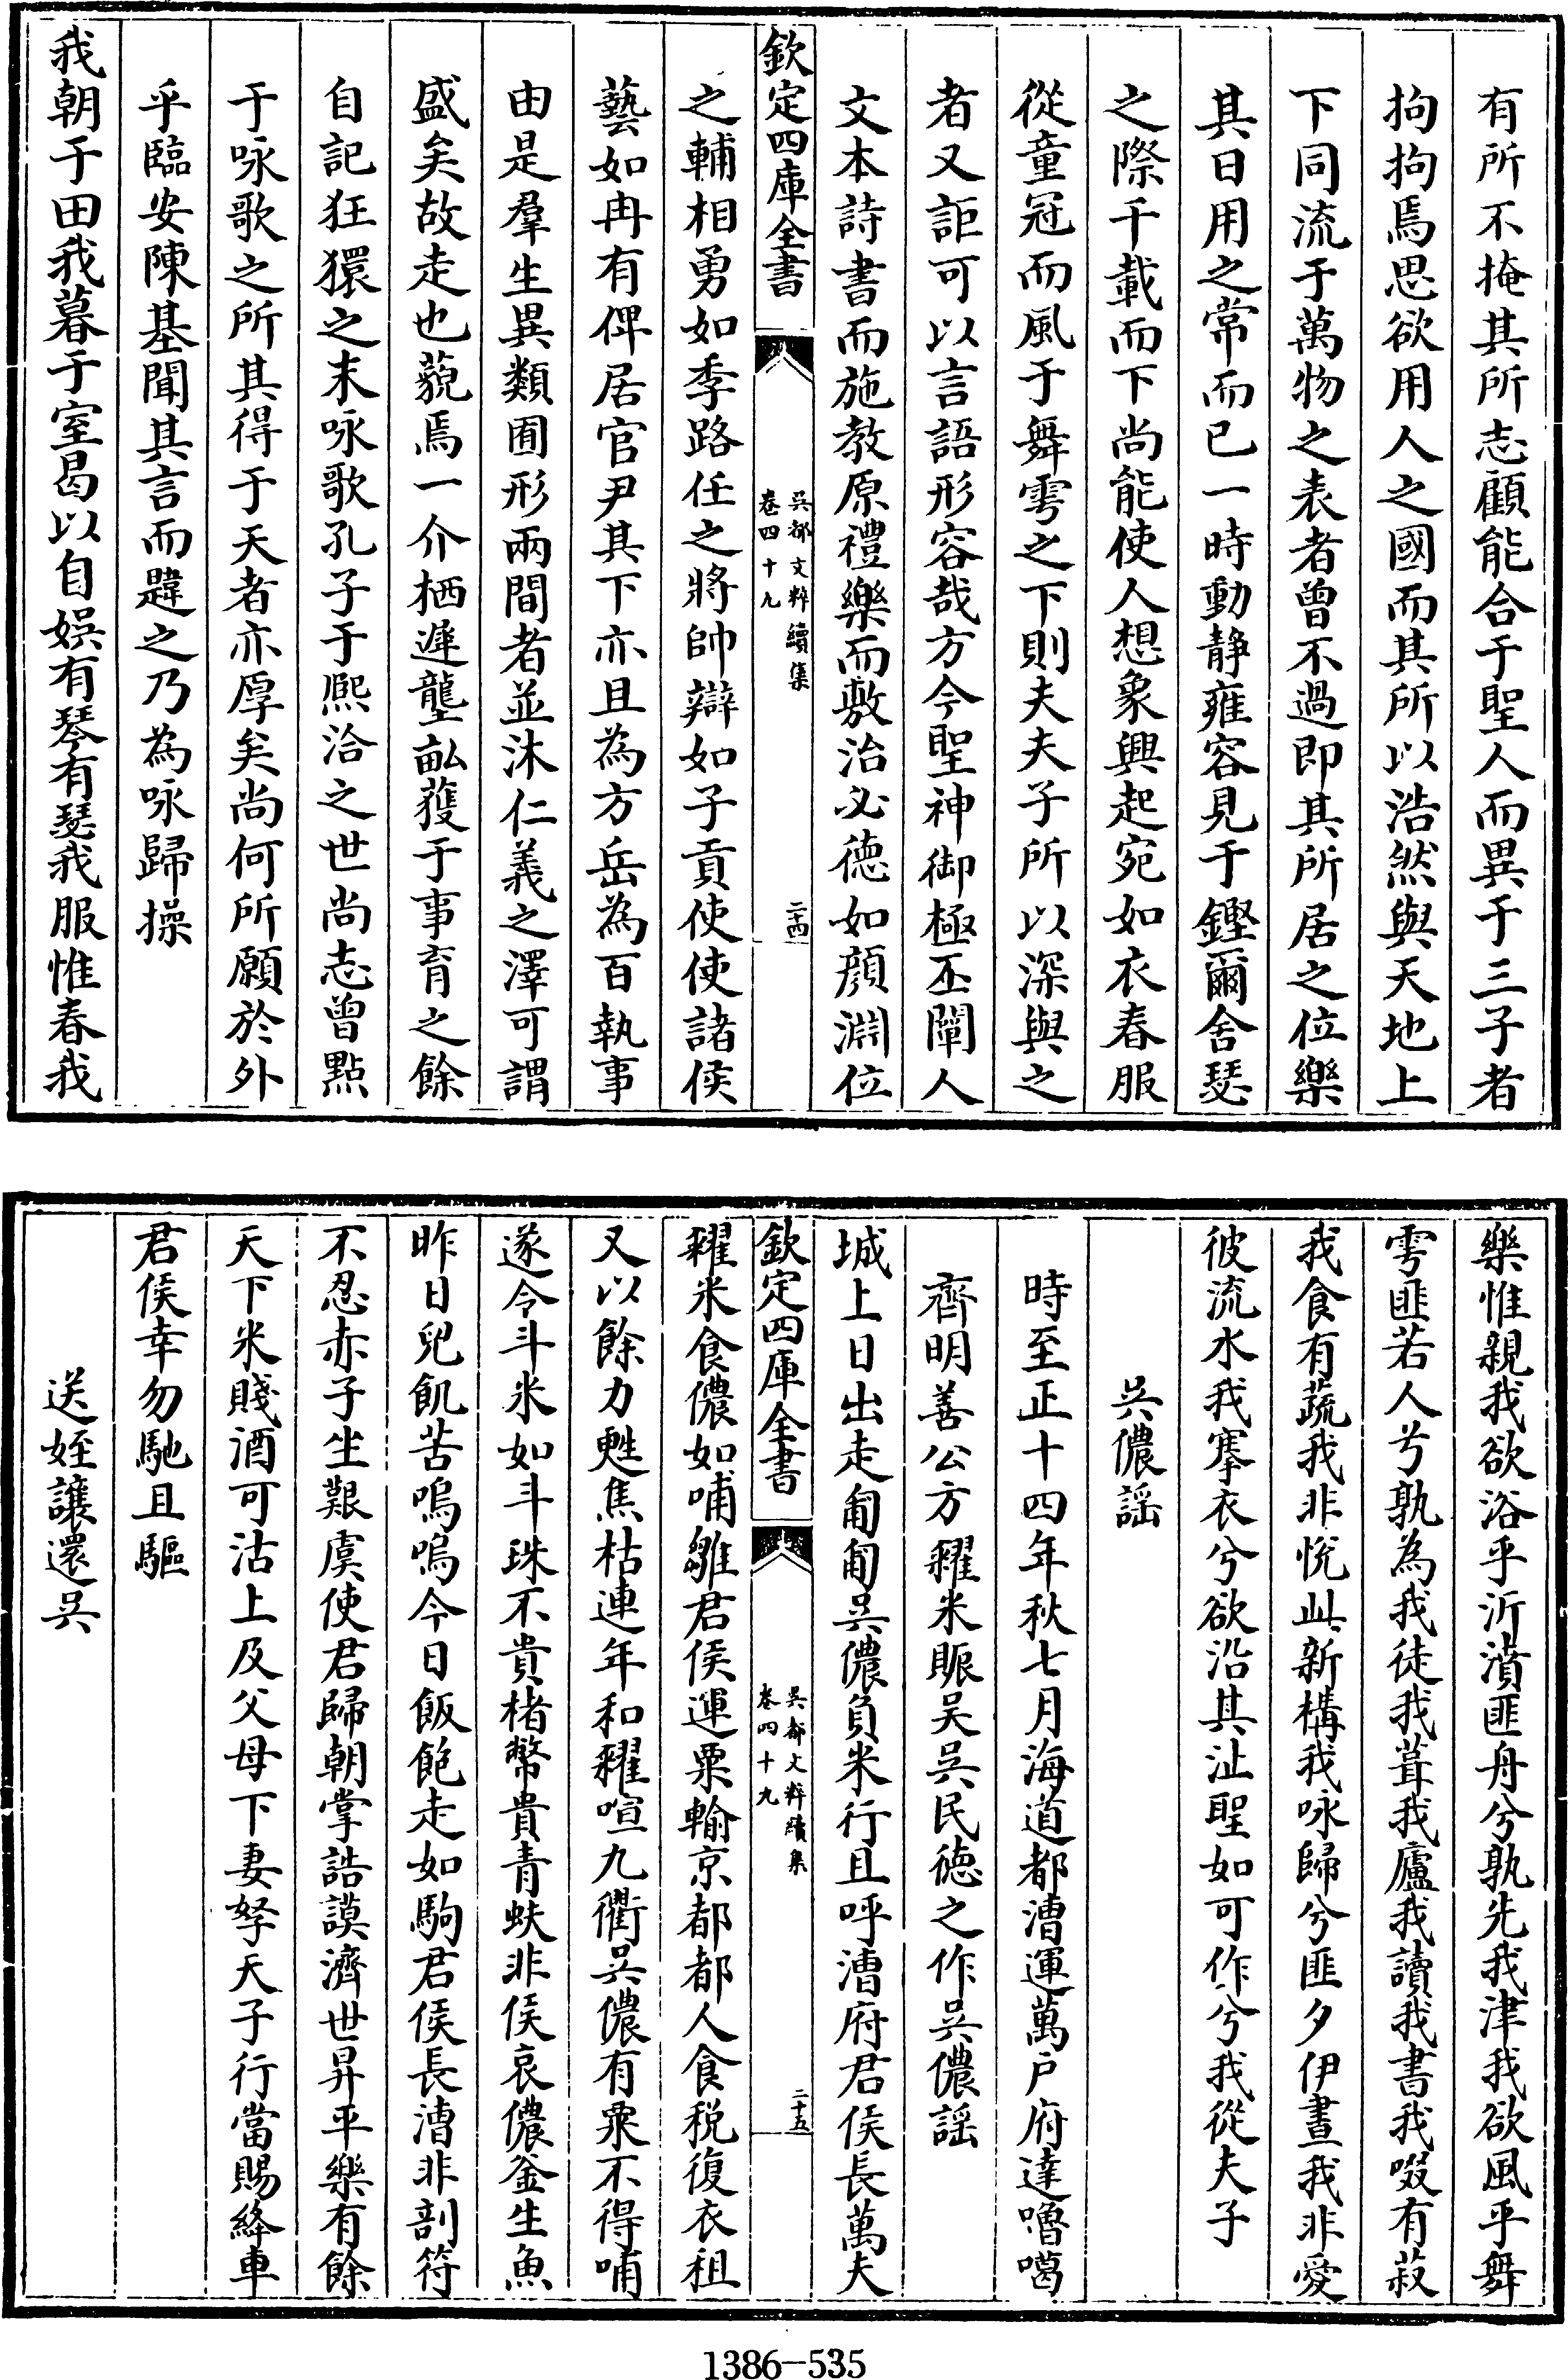 有所不掩其所志顧能合于聖人而異于三子者
拘拘焉思欲用人之國而其所以浩然與天地上
下同流于萬物之表者曾不過即其所居之位樂
其日用之常而已一時動静雍容見于鏗爾舍瑟
之際千載而下尚能使人想象興起宛如衣春服
從童冠而風于舞雩之下則夫夫子所以深與之
者又詎可以言語形容哉方今聖神御極丕闡人
文本詩書而施教原禮樂而敷治必德如顔淵位
欽定四庫全書
吳都文粹續集
卷四十九
二十四
之輔相勇如季路任之將帥辯如子貢使使諸侯
藝如冉有俾居官尹其下亦且為方岳為百執事
由是羣生異類囿形兩間者並沐仁義之澤可謂
盛矣故走也藐焉一介栖遲壟畝蒦于事育之餘
自記狂獧之末咏歌孔子于熈洽之世尚志曾點
于咏歌之所其得于天者亦厚矣尚何所願於外
乎臨安陳基聞其言而韙之乃為咏歸操
我朝于田我暮于室曷以自娛有琴有瑟我服惟春我
樂惟親我欲浴乎沂濆匪舟兮孰先我津我欲風乎舞
雩匪若人兮孰為我徒我葺我廬我讀我書我啜有菽
我食有蔬我非悅此新構我咏歸兮匪夕伊晝我非愛
彼流水我搴衣兮欲沿其沚聖如可作兮我從夫子
吳儂謡
時至正十四年秋七月海道都漕運萬户府達嚕噶
齊明善公方糶米賑吴吳民德之作吳儂謡
城上日出走匍匐吳儂負米行且呼漕府君侯長萬夫
欽定四庫全書
吳都文粹續集
卷四十九
二十五
糶米食儂如哺雛君侯運粟輸京都都人食税復衣租
又以餘力甦焦枯連年和糴喧九衢吳儂有粟不得哺
遂令斗米如斗珠不貴楮幣貴青蚨非侯哀儂釜生魚
昨日兒飢苦嗚嗚今日飯飽走如駒君侯長漕非剖符
不忍赤子坐艱虞使君歸朝掌誥謨濟世昇平樂有餘
天下米賤酒可沽上及父母下妻孥天子行當賜絳車
君侯幸勿馳且驅
送姪讓還吳
1386-535